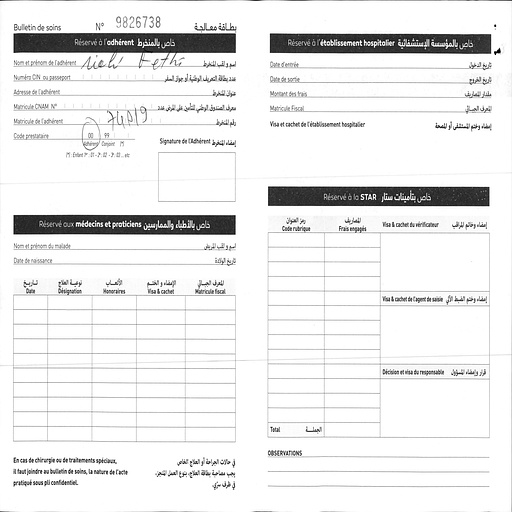 Bulletin de soins N° 9826738 بطاقة معالجة
Réservé à l'adhérent خاص بالمنخرط
Nom et prénom de l'adhérent اسم و لقب المنخرط
Numéro CIN ou passeport عدد بطاقة التعريف الوطنية أو جواز السفر
Adresse de l'adhérent عنوان المنخرط
Matricule CNAM N° معرف الصندوق الوطني للتأمين على المرض عدد
Matricule de l'adhérent 74019 رقم المنخرط
Code prestataire 00 99
Adhérent Conjoint (*)
(*) : Enfant 1er : 01 - 2 : 02 - 3 : 03 ... etc
Signature de l'Adhérent إمضاء المنخرط
Réservé aux médecins et praticiens خاص بالأطباء والممارسين
Nom et prénom du malade اسم و لقب المريض
Date de naissance تاريخ الولادة
تاريخ نوعية العلاج الأتعاب الإمضاء و الختم المعرف الجبائي
Date Désignation Honoraires Visa & cachet Matricule fiscal
En cas de chirurgie ou de traitements spéciaux,
il faut joindre au bulletin de soins, la nature de l'acte
pratiqué sous pli confidentiel.
في حالات الجراحة أو العلاج الخاص
يجب مصاحبة بطاقة العلاج، بنوع العمل المنجز،
في ظرف سري.
Réservé à l'établissement hospitalier خاص بالمؤسسة الإستشفائية
Date d'entrée تاريخ الدخول
Date de sortie تاريخ الخروج
Montant des frais مقدار المصاريف
Matricule Fiscal المعرف الجبائي
Visa et cachet de l'établissement hospitalier إمضاء وختم المستشفى أو المصحة
Réservé à la STAR خاص بتأمينات ستار
رمز العنوان المصاريف
Code rubrique Frais engagés
Visa & cachet du vérificateur إمضاء وخاتم المراقب
Visa & cachet de l'agent de saisie إمضاء وختم الضبط الآلي
Décision et visa du responsable قرار وإمضاء المسؤول
Total الجملة
OBSERVATIONS